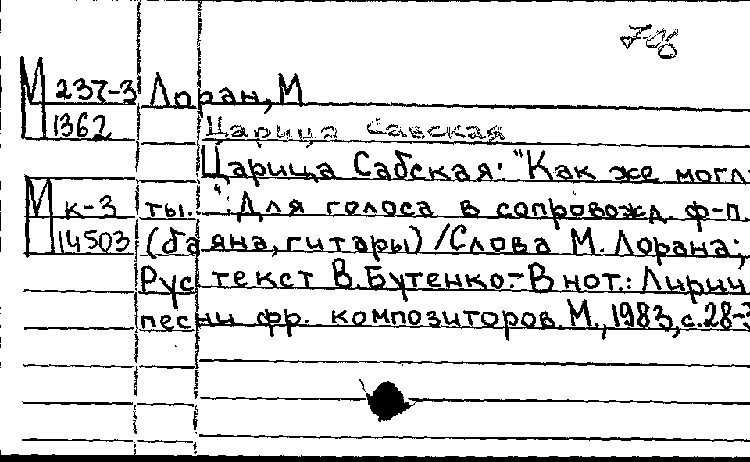 М 237-3 Лоран, М
1362 Царица Савская
Царица Сабская: "Как же могл
М к-3 ты...": Для голоса в сопровожд. ф-п.
14503 (баяна, гитары) / Слова М. Лорана;
Рус текст В. Бутенко.- В нот.: Лирич
песни фр. композиторов. М., 1983, с.28-3